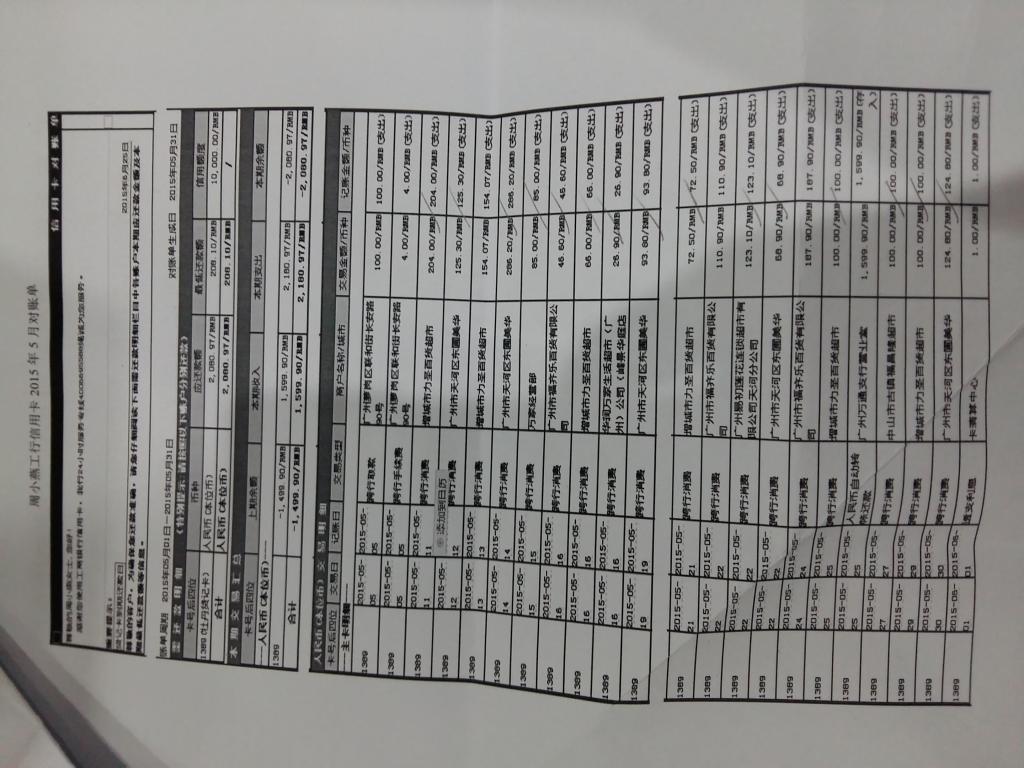 周小燕工行信用卡 2015 年 5 月对账单
信 用 卡 对 账 单
尊敬的周小燕女士，您好！
感谢您使用工商银行信用卡，我行24小时服务专线4006695588竭诚为您服务。
重要提示：
贷记卡到期还款日 2015年6月25日
尊敬的客户，为确保您还款准确，请您仔细阅读下面需还款明细栏目中各账户本期应还款金额及本
期最低还款额等信息。
账单周期 2015年05月01日—2015年05月31日 对账单生成日 2015年05月31日
需 还 款 明 细
卡号后四位 币种 应还款额 最低还款额 信用额度
1389(牡丹贷记卡) 人民币(本位币) 2,080.97/RMB 208.10/RMB 10,000.00/RMB
合计 人民币(本位币) 2,080.97/RMB 208.10/RMB /
本 期 交 易 汇 总
卡号后四位 上期余额 本期收入 本期支出 本期余额
---人民币(本位币)---
1389 -1,499.90/RMB 1,599.90/RMB 2,180.97/RMB -2,080.97/RMB
合计 -1,499.90/RMB 1,599.90/RMB 2,180.97/RMB -2,080.97/RMB
人民币(本位币) 交 易 明 细
卡号后四位 交易日 记账日 交易类型 商户名称/城市 交易金额/币种 记账金额/币种
---主卡明细---
1389 2015-05-05 2015-05-05 跨行取款 广州萝岗区联和街长安路90号 100.00/RMB 100.00/RMB(支出)
1389 2015-05-05 2015-05-05 跨行手续费 广州萝岗区联和街长安路90号 4.00/RMB 4.00/RMB(支出)
1389 2015-05-11 2015-05-11 跨行消费 增城市力圣百货超市 204.00/RMB 204.00/RMB(支出)
添加到日历
1389 2015-05-12 2015-05-12 跨行消费 广州市天河区东圃美华 125.30/RMB 125.30/RMB(支出)
1389 2015-05-13 2015-05-13 跨行消费 增城市力圣百货超市 154.07/RMB 154.07/RMB(支出)
1389 2015-05-14 2015-05-14 跨行消费 广州市天河区东圃美华 286.20/RMB 286.20/RMB(支出)
1389 2015-05-15 2015-05-15 跨行消费 万家经营部 85.00/RMB 85.00/RMB(支出)
1389 2015-05-16 2015-05-16 跨行消费 广州市福乔乐百货有限公司 46.60/RMB 46.60/RMB(支出)
1389 2015-05-16 2015-05-16 跨行消费 增城市力圣百货超市 66.00/RMB 66.00/RMB(支出)
1389 2015-05-16 2015-05-16 跨行消费 华润万家生活超市（广州）公司（峰景华庭店 26.90/RMB 26.90/RMB(支出)
1389 2015-05-19 2015-05-19 跨行消费 广州市天河区东圃美华 93.80/RMB 93.80/RMB(支出)
1389 2015-05-21 2015-05-21 跨行消费 增城市力圣百货超市 72.50/RMB 72.50/RMB(支出)
1389 2015-05-22 2015-05-22 跨行消费 广州市福乔乐百货有限公司 110.90/RMB 110.90/RMB(支出)
1389 2015-05-22 2015-05-22 跨行消费 广州易初莲花连锁超市有限公司天河分公司 123.10/RMB 123.10/RMB(支出)
1389 2015-05-22 2015-05-22 跨行消费 广州市天河区东圃美华 68.90/RMB 68.90/RMB(支出)
1389 2015-05-24 2015-05-24 跨行消费 广州市福乔乐百货有限公司 187.90/RMB 187.90/RMB(支出)
1389 2015-05-25 2015-05-25 跨行消费 增城市力圣百货超市 100.00/RMB 100.00/RMB(支出)
1389 2015-05-25 2015-05-25 人民币自动转账还款 广州万通支行营业室 1,599.90/RMB 1,599.90/RMB(存入)
1389 2015-05-27 2015-05-27 跨行消费 中山市古镇福昌隆超市 100.00/RMB 100.00/RMB(支出)
1389 2015-05-29 2015-05-29 跨行消费 增城市力圣百货超市 100.00/RMB 100.00/RMB(支出)
1389 2015-05-30 2015-05-30 跨行消费 广州市天河区东圃美华 124.80/RMB 124.80/RMB(支出)
1389 2015-06-01 2015-06-01 透支利息 卡清算中心 1.00/RMB 1.00/RMB(支出)